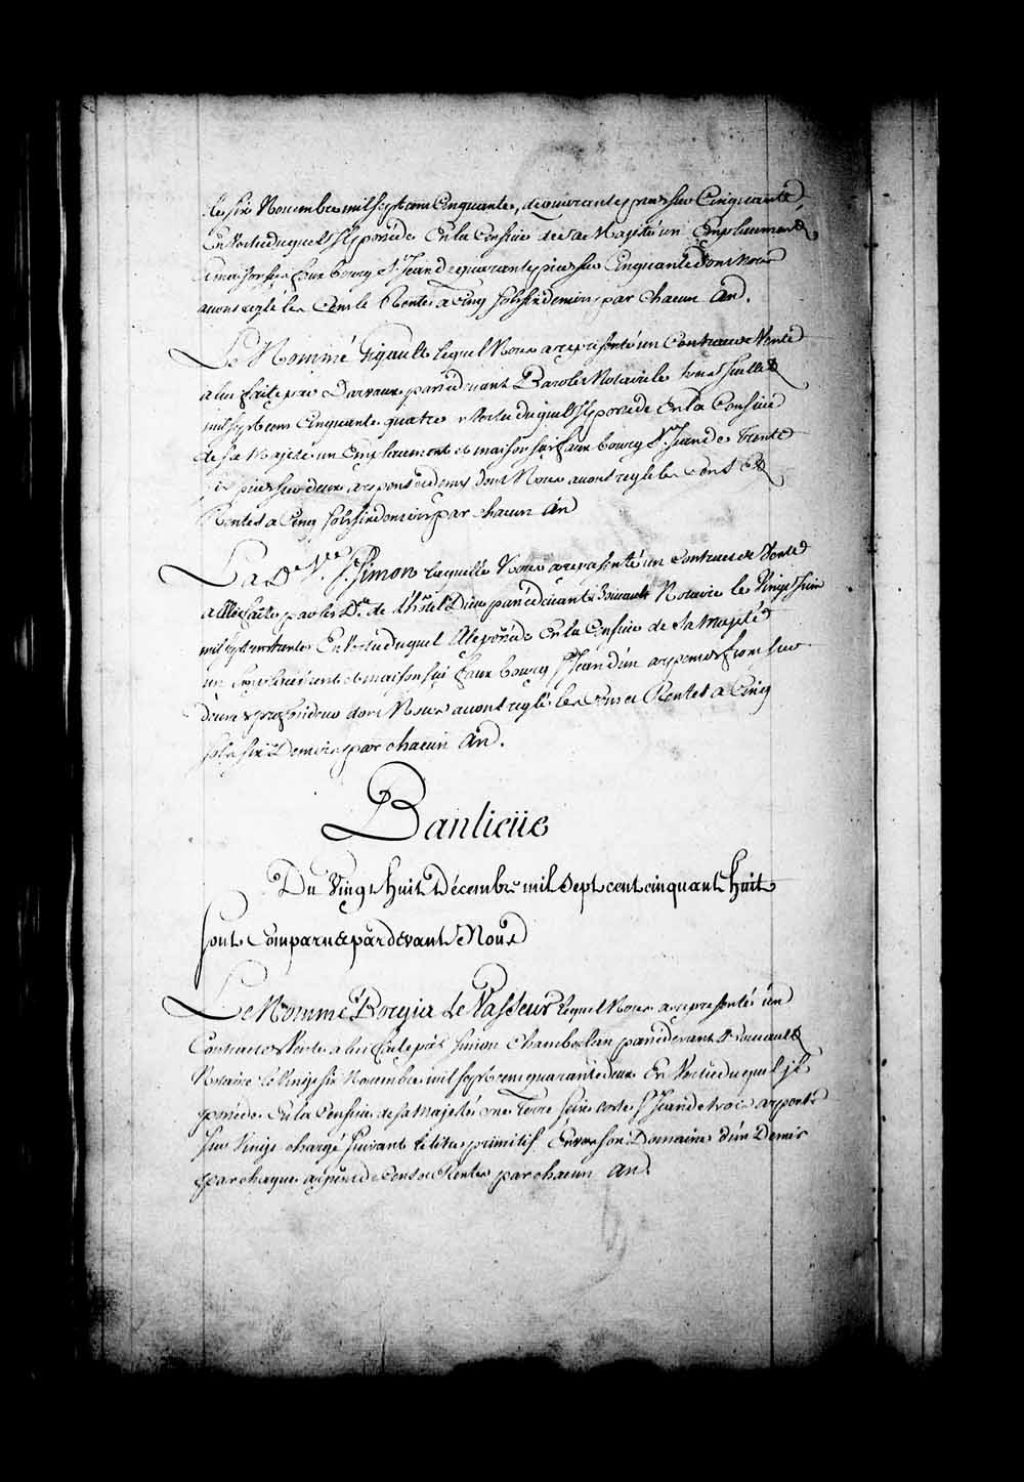 le six Novembre mil sept cent Cinquante, de quarante pieds sur Cinquante,
En vertu duquel Il possède En la Censive de sa Majesté un Emplacement
& maison sis faux bourg St Jean de quarante pieds sur Cinquante dont Nous
avons reglé les Cens & Rentes a Cinq sols six deniers par chacun An.
Le Nommé Tigault lequel Nous a representé un Contract de Vente
a lui faite par Darveau pardevant Barolet Notaire le Juillet
mil sept cens Cinquante quatre En Vertu duquel Il possède En la Censive
de sa Majesté un Emplacement et maison sis faux bourg St Jean de Trente
six pieds sur deux arpents dont Nous avons reglé les Cens &
Rentes a Cinq sols six deniers par chacun An
La De Ve J. Simon laquelle Nous a representé un Contract de Vente
a Elle faite par les De de l'hôtel Dieu pardevant Notaire le Vingt Juin
mil sept trente En Vertu duquel Elle possède En la Censive de sa Majesté
un Emplacement et maison sis faux bourg St Jean d'un arpent sur
deux profondeur dont Nous avons reglé les Cens et Rentes a Cinq
sols six Deniers par chacun An.
Banlieüe
Du Vingt huit Décembre mil sept cent cinquant huit
sont Comparu & pardevant Nous
Le Nommé Borgia Le Vasseur lequel Nous a representé un
Contract de Vente a lui faite par Simon Chamberlan pardevant
Notaire le Vingt six Novembre mil sept cent quarante deux En Vertu duquel il
possède En la Censive de sa Majesté une Terre size coste St Jean de trois arpents
sur Vingt chargé suivant le titre primitif Envers son Domaine d'un Denier
par chaque arpent de Cens & Rentes par chacun An.